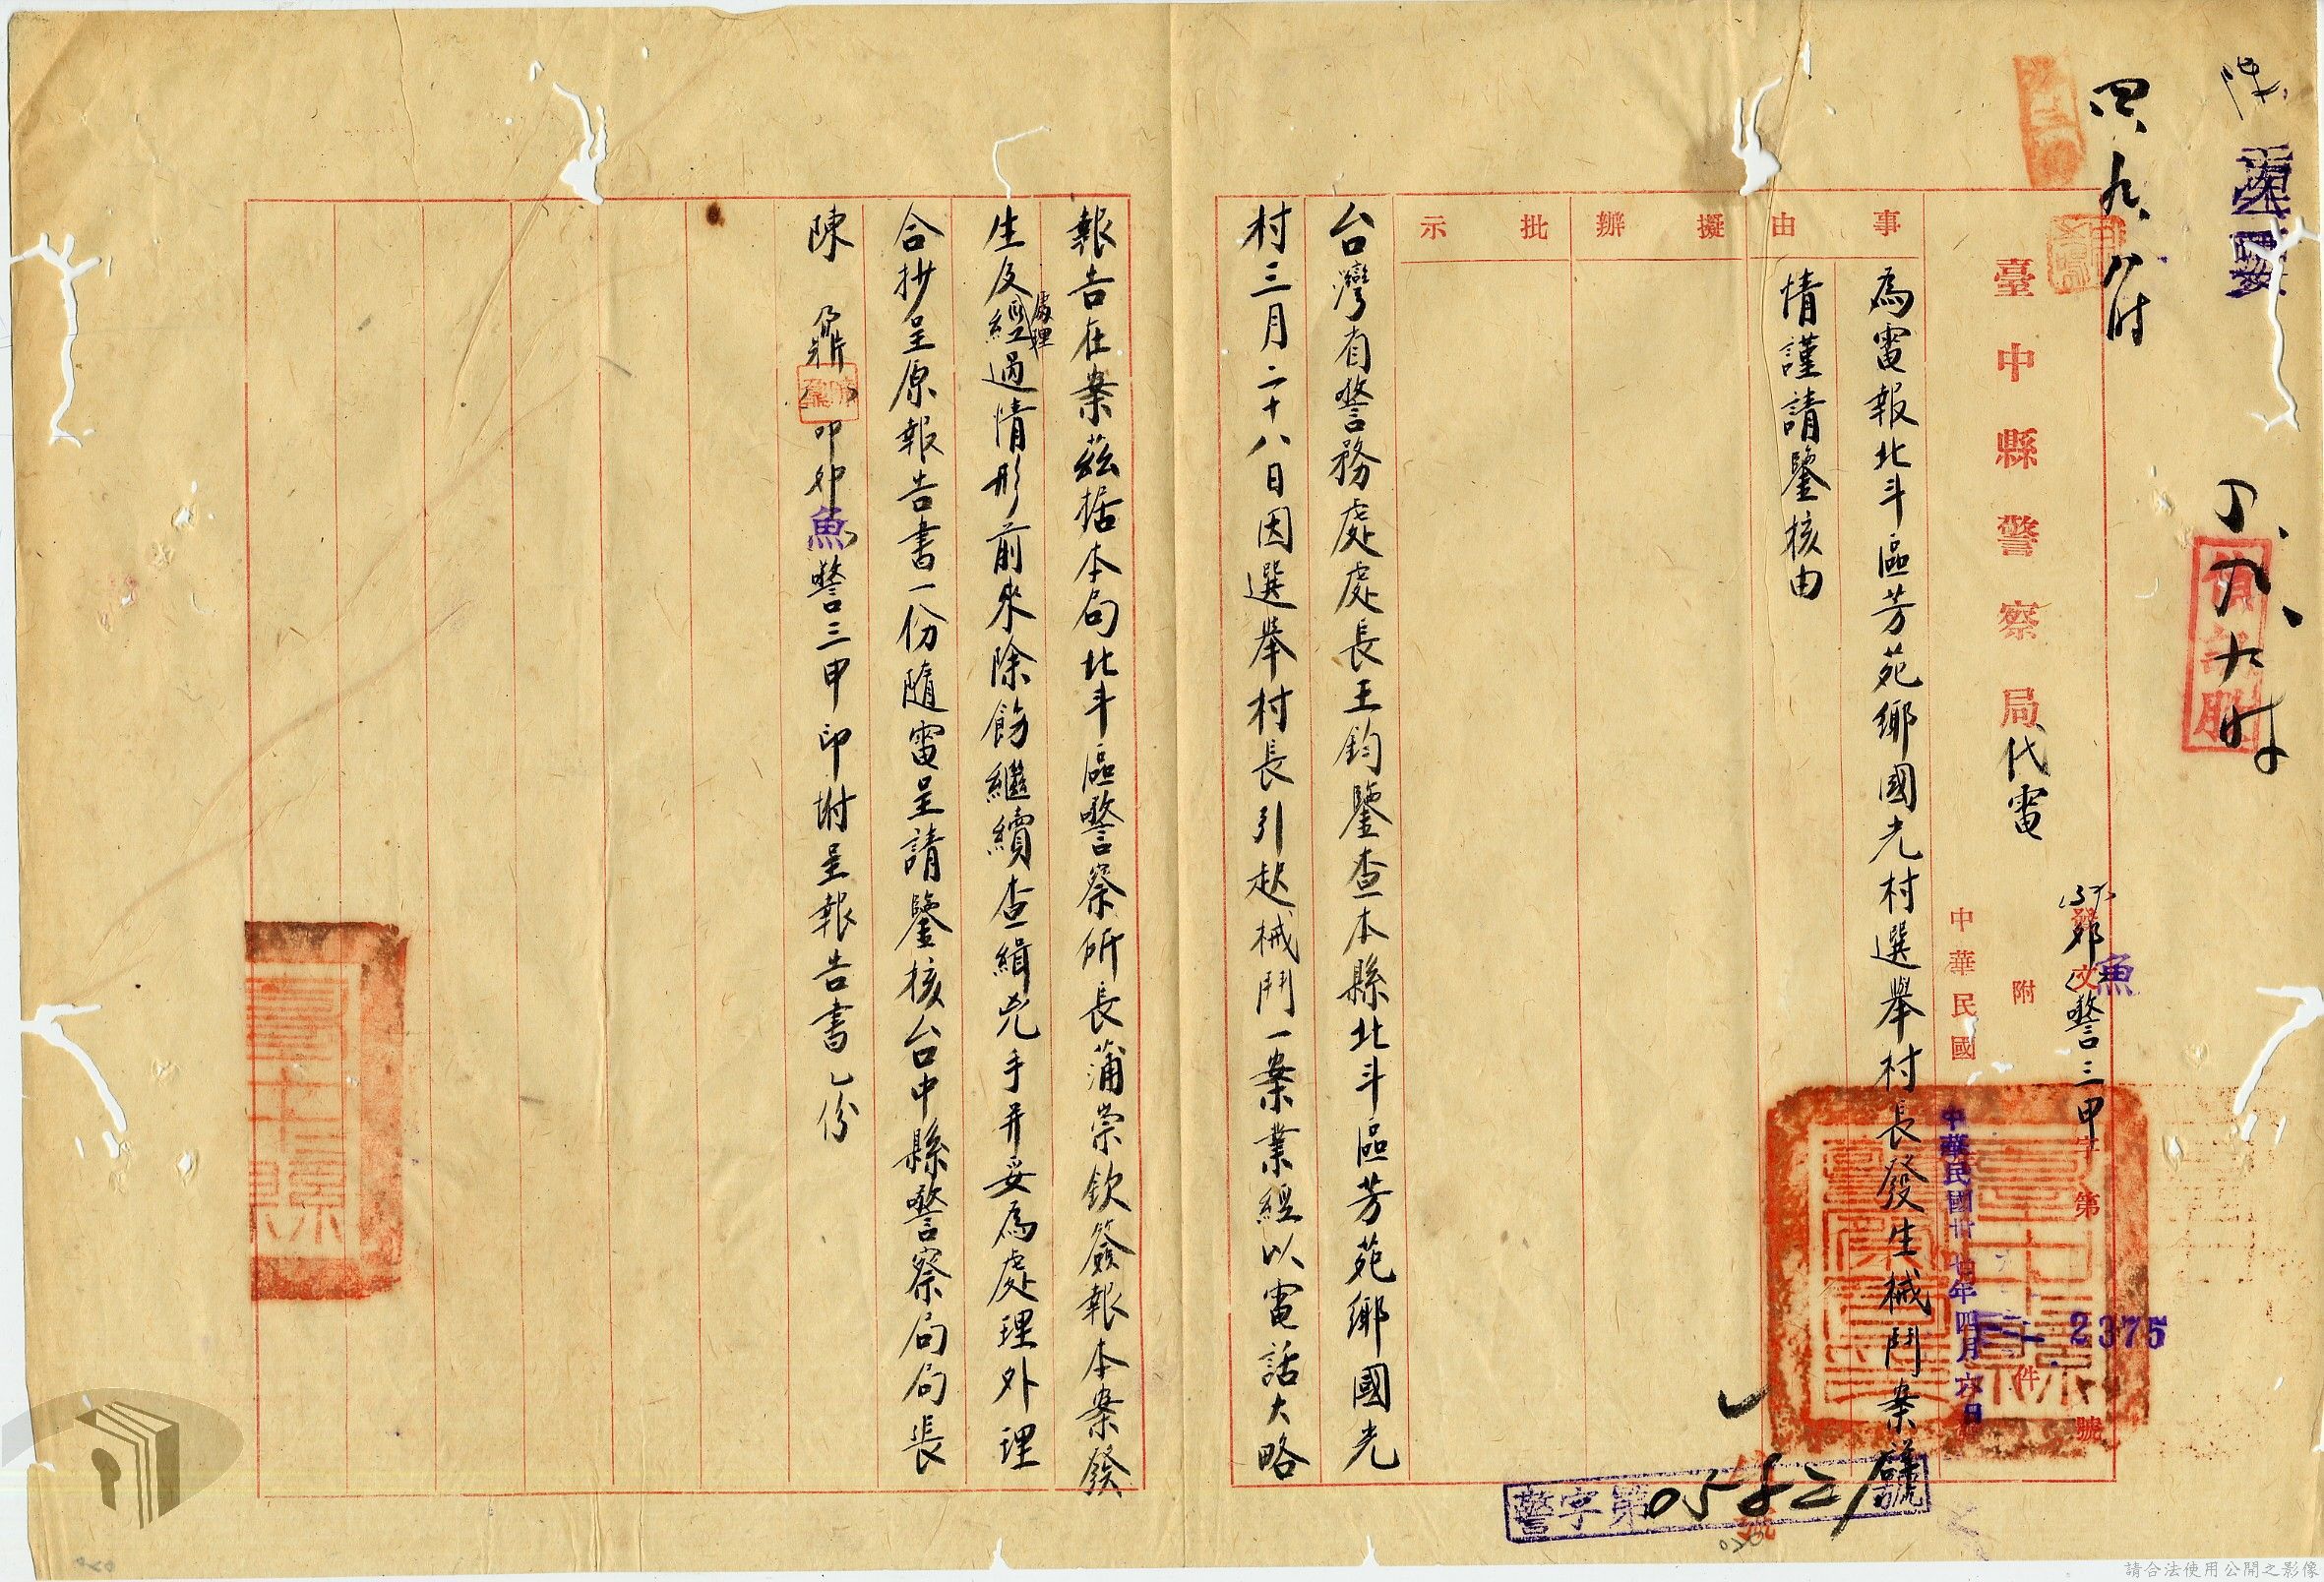 四、九、八时
臺中縣警察局代電
(37)卯魚警三甲
發文 字第 2375 號
附 件
中華民國
中華民國卅七年四月六日
事由
擬辦
批示
為電報北斗區芳苑鄉國光村選舉村長發生械鬥案詳
情謹請鑒核由
台灣省警務處處長王鈞鑒查本縣北斗區芳苑鄉國光
村三月二十八日因選舉村長引起械鬥一案業經以電話大略
報告在案茲据本局北斗區警察所長蒲崇欽簽報本案發
生及處理經過情形前來除飭繼續查緝兇手并妥為處理外理
合抄呈原報告書一份隨電呈請鑒核台中縣警察局局長
陳 印卯魚警三甲印坿呈報告書乙份
警字第05821號
請合法使用公開之影像